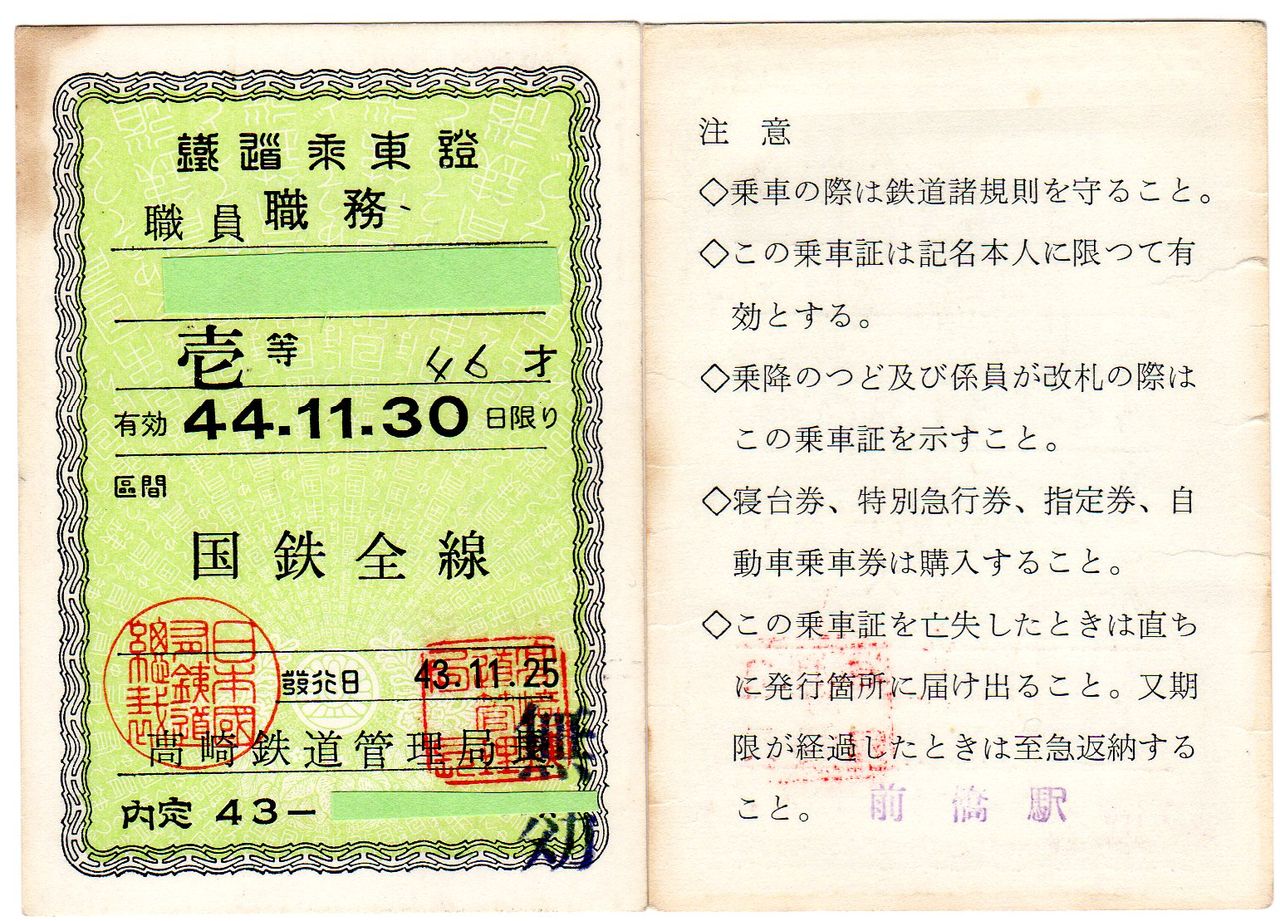 鐵道乘車證
職員 職務
壱等 46才
有効 44.11.30 日限り
區間
国鉄全線
日本國有鐵道總裁
發行日 43.11.25
高崎鉄道管理局長
無効
内定 43−
注 意
◇乗車の際は鉄道諸規則を守ること。
◇この乗車証は記名本人に限つて有
効とする。
◇乗降のつど及び係員が改札の際は
この乗車証を示すこと。
◇寝台券、特別急行券、指定券、自
動車乗車券は購入すること。
◇この乗車証を亡失したときは直ち
に発行箇所に届け出ること。又期
限が経過したときは至急返納する
こと。
前橋駅